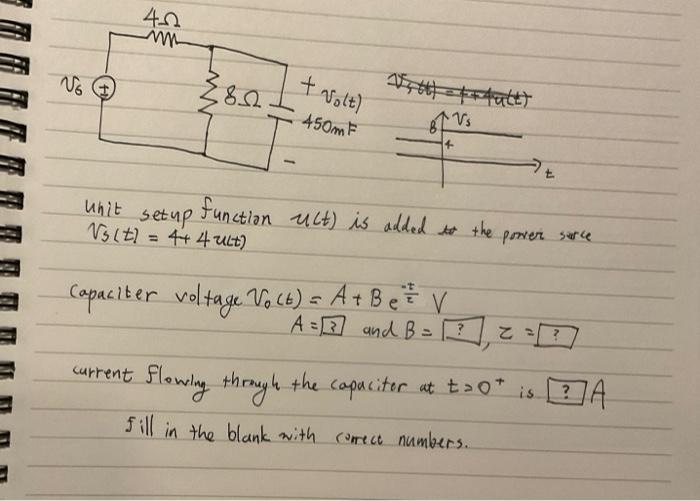 4Ω
Vs
8Ω
+ Vo(t)
450mF
-
Vs(t) = 4+4u(t)
8
Vs
4
t
Unit setup function u(t) is added to the power surce
Vs(t) = 4+ 4u(t)
Capaciter voltage Vo(t) = A + B e^(-t/τ) V
A = [?] and B = [?], τ = [?]
current flowing through the capacitor at t=0⁺ is [?] A
fill in the blank with correct numbers.